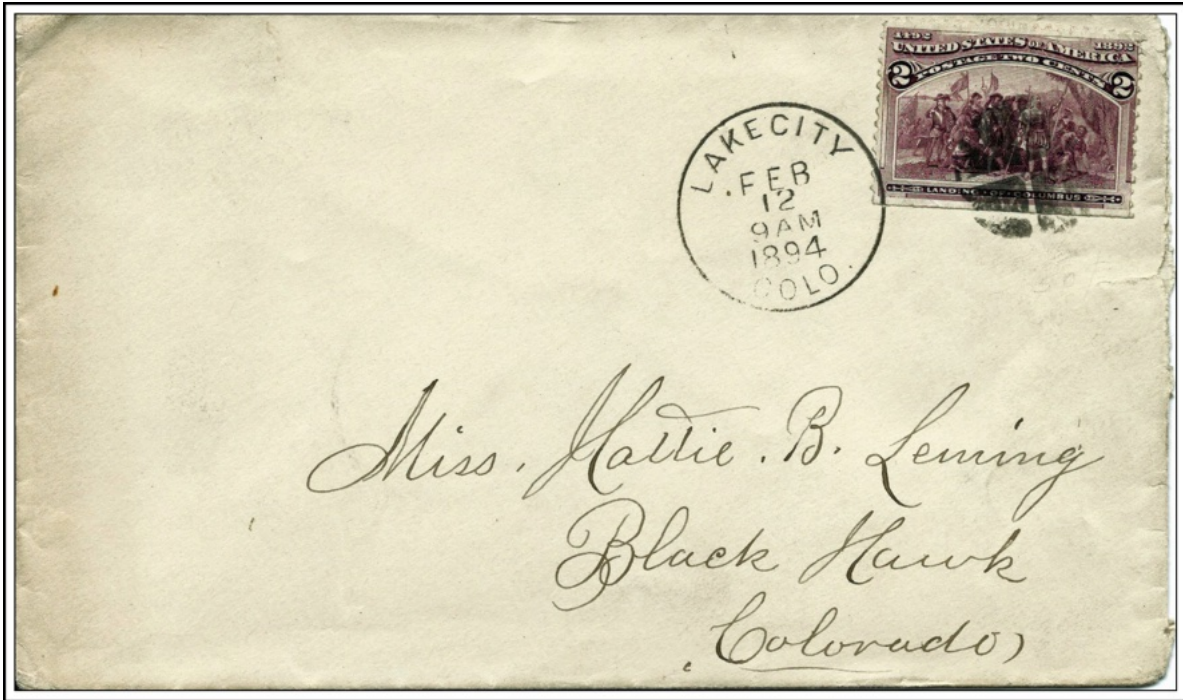 1492 1892
UNITED STATES OF AMERICA
POSTAGE TWO CENTS
2 2
LANDING OF COLUMBUS
LAKE CITY
FEB
12
9AM
1894
COLO.
Miss. Hattie. B. Leming
Black Hawk
Colorado